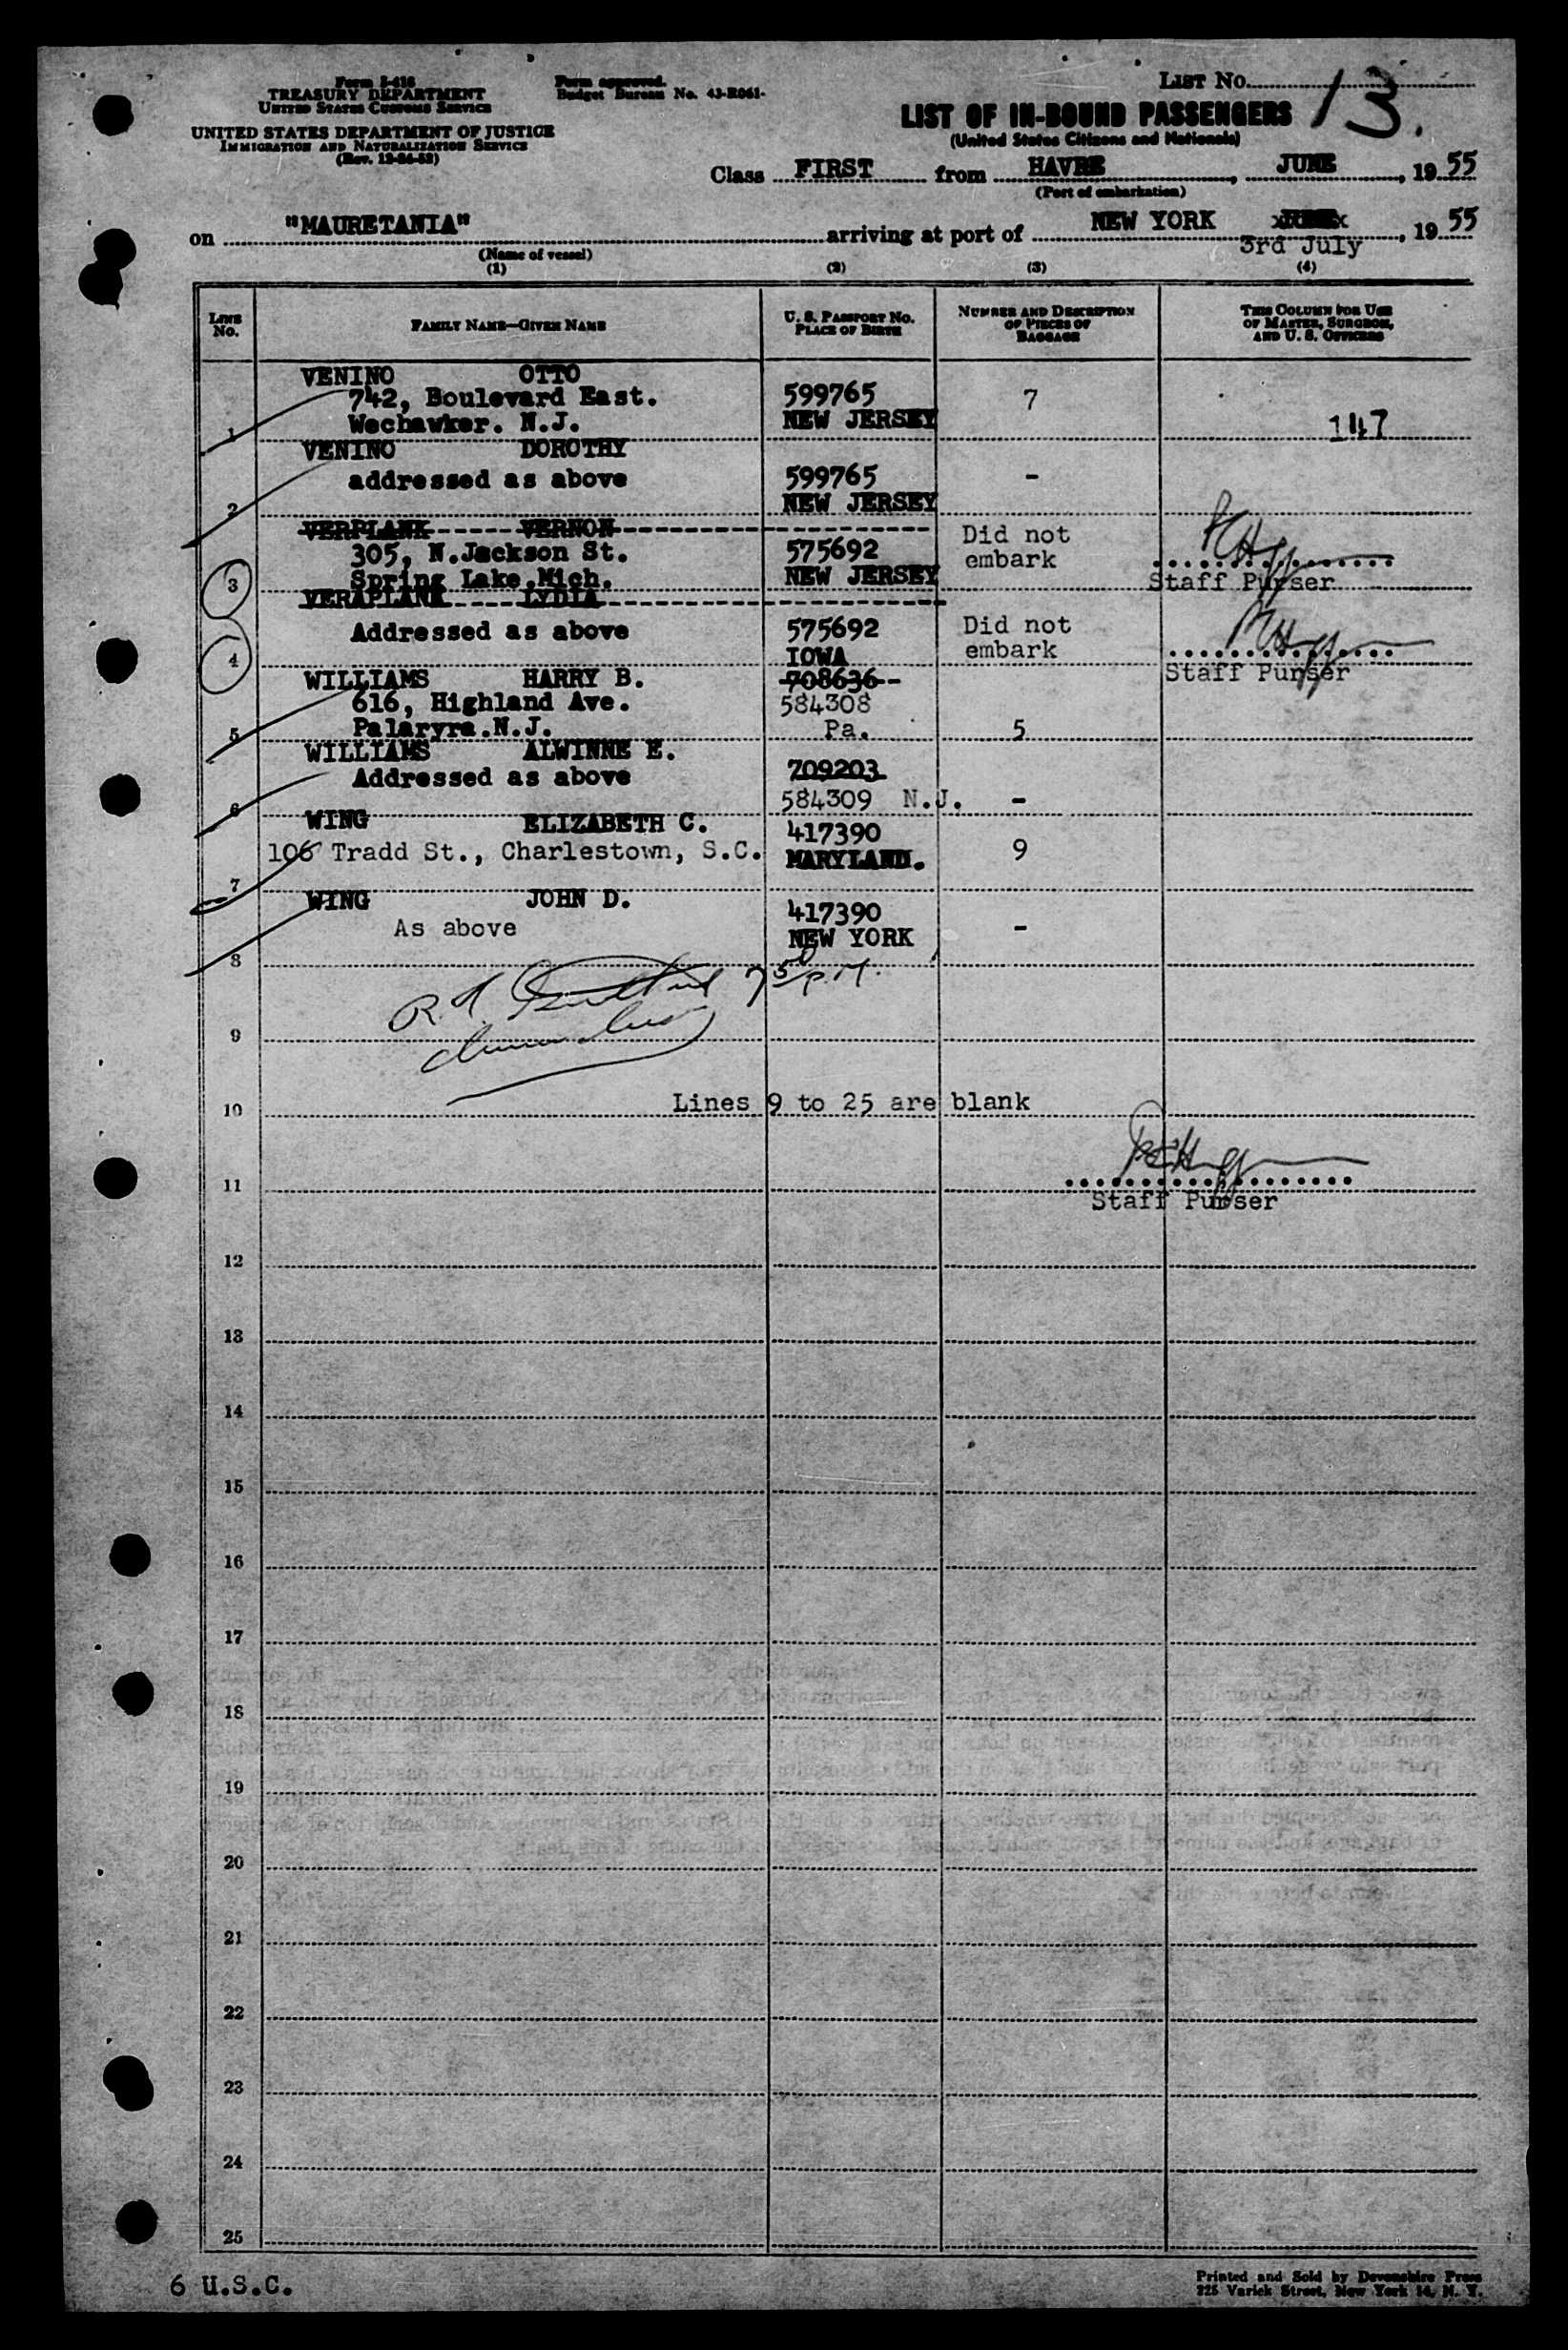 Form I-416
TREASURY DEPARTMENT
UNITED STATES CUSTOMS SERVICE
UNITED STATES DEPARTMENT OF JUSTICE
IMMIGRATION AND NATURALIZATION SERVICE
(Rev. 12-24-52)
Form approved.
Budget Bureau No. 43-R061-
LIST No. 13.
LIST OF IN-BOUND PASSENGERS
(United States Citizens and Nationals)
Class FIRST from HAVRE, JUNE, 19 55
(Port of embarkation)
on "MAURETANIA" arriving at port of NEW YORK JUNE, 19 55
3rd July
(Name of vessel)
(1) (2) (3) (4)
LINE No. FAMILY NAME—GIVEN NAME U. S. PASSPORT NO. PLACE OF BIRTH NUMBER AND DESCRIPTION OF PIECES OF BAGGAGE THIS COLUMN FOR USE OF MASTER, SURGEON, AND U. S. OFFICERS
VENINO OTTO
742, Boulevard East. 599765 7
1 Wechawker. N.J. NEW JERSEY 147
VENINO DOROTHY
addressed as above 599765 -
2 NEW JERSEY
VERPLANK VERNON Did not
305, N.Jackson St. 575692 embark
3 Spring Lake.Mich. NEW JERSEY Staff Purser
VERAPLANK LYDIA
Addressed as above 575692 Did not
4 IOWA embark
WILLIAMS HARRY B. 708636 Staff Purser
616, Highland Ave. 584308
5 Palaryra.N.J. Pa. 5
WILLIAMS ALWINNE E.
Addressed as above 709203
6 584309 N.J. -
WING ELIZABETH C. 417390
106 Tradd St., Charlestown, S.C. MARYLAND. 9
7
WING JOHN D. 417390
As above NEW YORK -
8
7 50 P.M.
9
Lines 9 to 25 are blank
10
11
Staff Purser
12
13
14
15
16
17
18
19
20
21
22
23
24
25
6 U.S.C.
Printed and Sold by Devonshire Press
225 Varick Street, New York 14, N. Y.